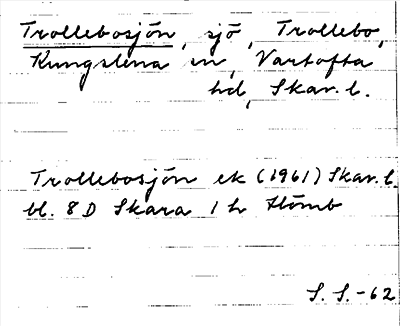 Trollebosjön, sjö, Trollebo,
Kungslena sn, Vartofta
hd, Skar. l.
Trollebosjön ek (1961) Skar. l.
bl. 8 D Skara 1 h Stömb
S. S. -62